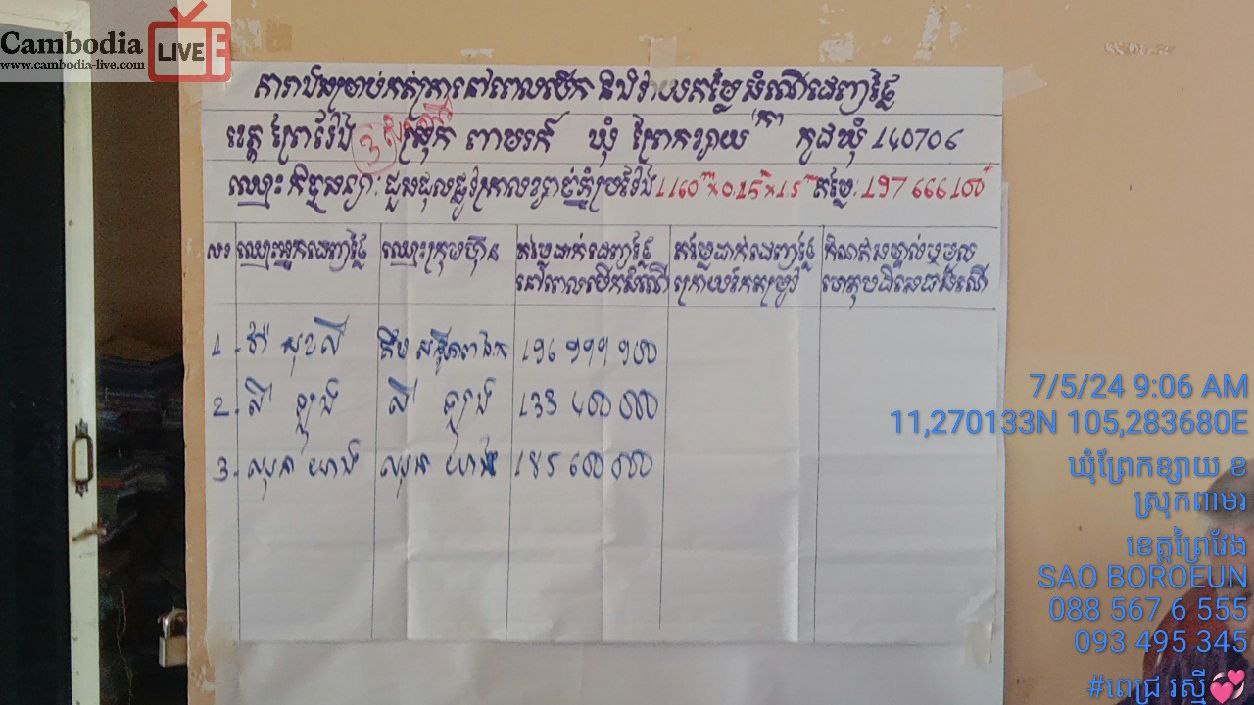 Cambodia LIVE
www.cambodia-live.com
តារាងសម្រាប់កត់ត្រានៅពេលបើក និងវាយតម្លៃសំណើដេញថ្លៃ
ខេត្ត ព្រៃវែង ស្រុក ពាមរក៍ ឃុំ ព្រែកខ្សាយ "ក" កូដឃុំ 140706
ឈ្មោះកិច្ចសន្យា: ជួសជុលផ្លូវក្រាលខ្សាច់ភ្នំប្រវែង 1160m តម្លៃ: 197 666 100
លរ ឈ្មោះអ្នកដេញថ្លៃ ឈ្មោះក្រុមហ៊ុន តម្លៃដាក់ដេញថ្លៃ តម្លៃដាក់ដេញថ្លៃ កំណត់សម្គាល់ឬមូល
នៅពេលបើកសំណើ ក្រោយកែតម្រូវ ហេតុបដិសេធសំណើ
1. សុខលី 196 999 900
2. លី ឡុង លី ឡុង 133 400 000
3. 185 600 000
7/5/24 9:06 AM
11,270133N 105,283680E
ឃុំព្រែកខ្សាយ ខ
ស្រុកពាមរ
ខេត្តព្រៃវែង
SAO BOROEUN
088 567 6 555
093 495 345
#ពេជ្រ រស្មី💞